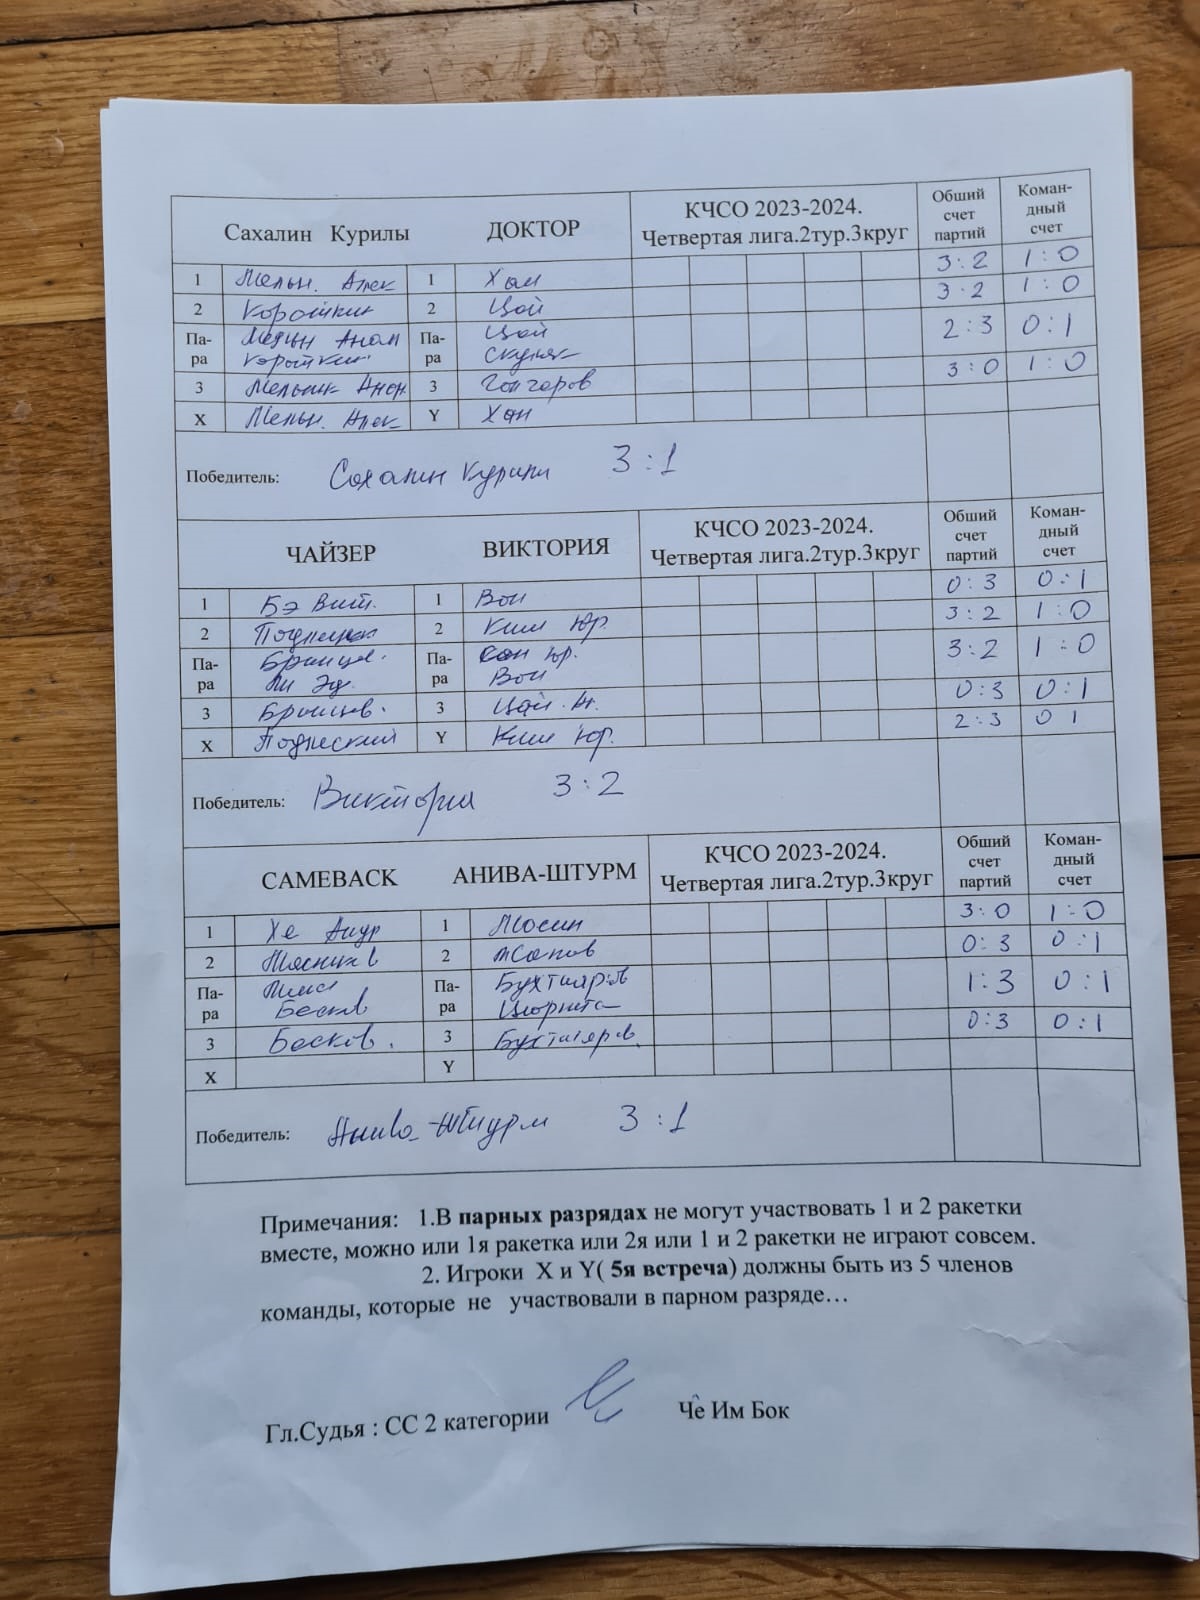 Сахалин Курилы ДОКТОР КЧСО 2023-2024. Четвертая лига.2тур.3круг Обший счет партий Коман-дный счет
1 Мельн. Алек 1 Хан 3:2 1:0
2 Короткин 2 Цой 3:2 1:0
Па- Мельн Анат Па- Цой 2:3 0:1
ра Короткин ра
3 Мельник Анат 3 Гончаров 3:0 1:0
X Мельн. Алек Y Хан
Победитель: Сахалин Курилы 3:1
ЧАЙЗЕР ВИКТОРИЯ КЧСО 2023-2024. Четвертая лига.2тур.3круг Обший счет партий Коман-дный счет
1 Бэ Вит. 1 Вон 0:3 0:1
2 2 Ким Юр. 3:2 1:0
Па- Па- Сон Юр. 3:2 1:0
ра Ли Эд. ра Вон
3 3 Цой 0:3 0:1
X Y Ким Юр. 2:3 0 1
Победитель: Виктория 3:2
CAMEBACK АНИВА-ШТУРМ КЧСО 2023-2024. Четвертая лига.2тур.3круг Обший счет партий Коман-дный счет
1 Хе 1 Мосин 3:0 1:0
2 2 0:3 0:1
Па- Па- Бухтияров 1:3 0:1
ра Бесков ра
3 Бесков. 3 Бухтияров. 0:3 0:1
X Y
Победитель: Анива-Штурм 3:1
Примечания: 1.В парных разрядах не могут участвовать 1 и 2 ракетки
вместе, можно или 1я ракетка или 2я или 1 и 2 ракетки не играют совсем.
2. Игроки X и Y( 5я встреча) должны быть из 5 членов
команды, которые не участвовали в парном разряде…
Гл.Судья : СС 2 категории Че Им Бок